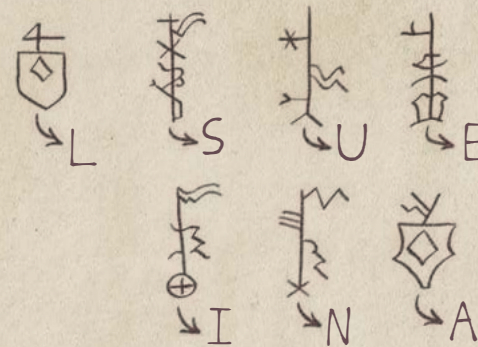 L S U E
I N A